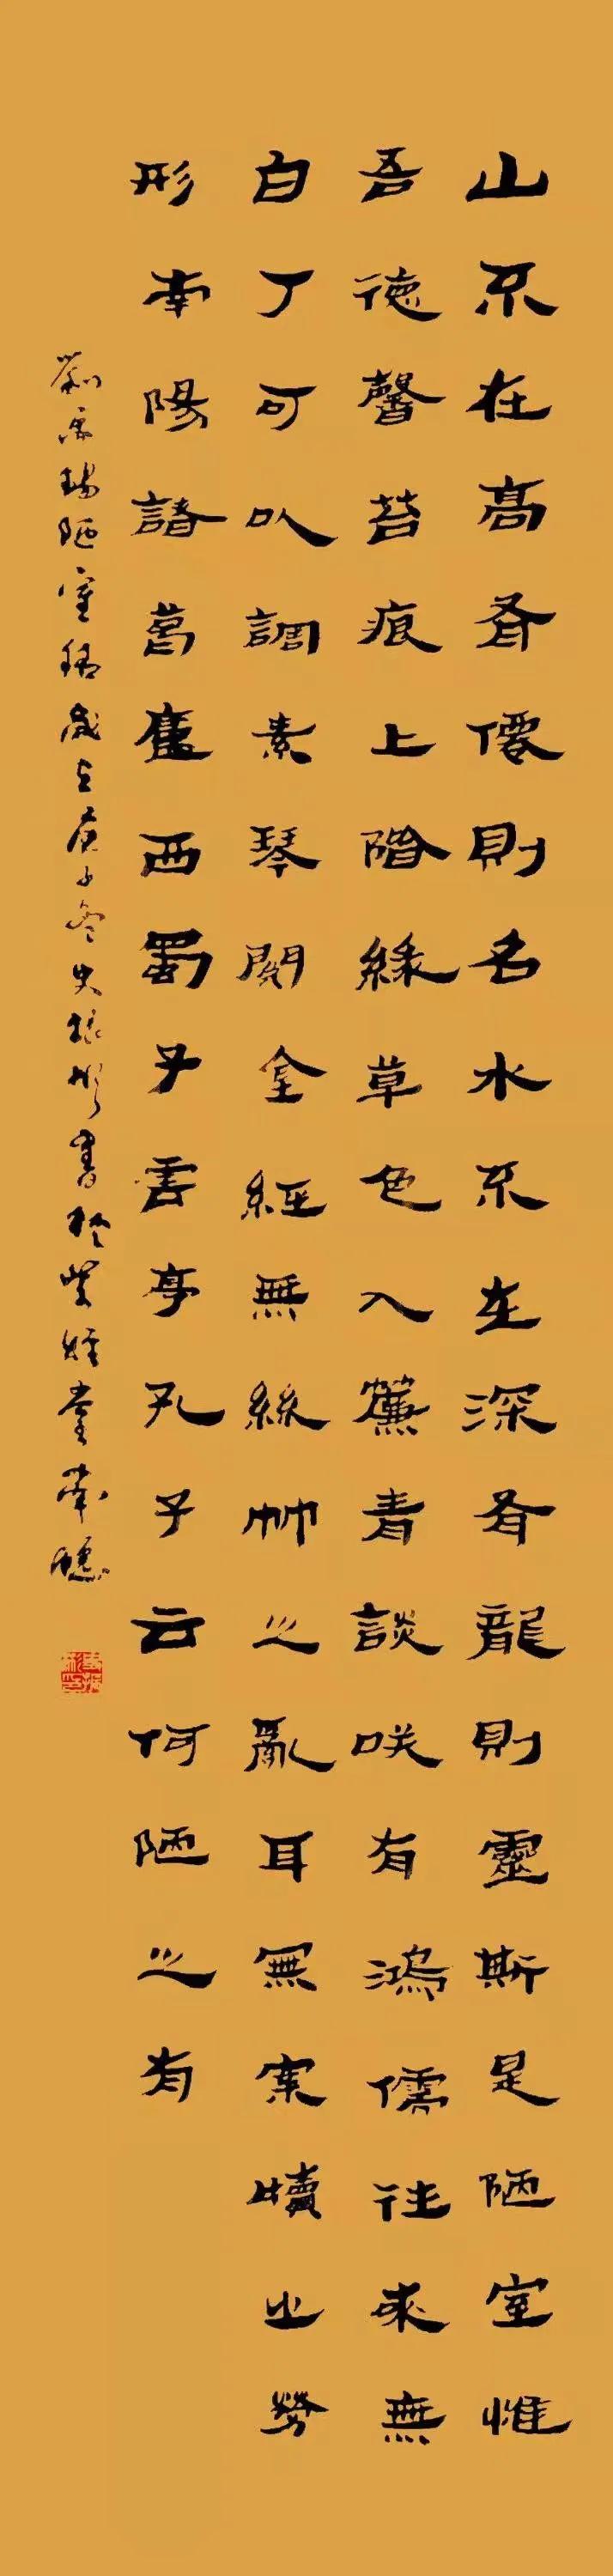 山不在高有僊則名水不在深有龍則靈斯是陋室惟
吾德馨苔痕上階緑草色入簾青談咲有鴻儒往來無
白丁可以調素琴閱金經無絲竹之亂耳無案牘之勞
形南陽諸葛廬西蜀子雲亭孔子云何陋之有
劉禹錫陋室銘歲在庚子冬史振彬書於紫煙堂南牕